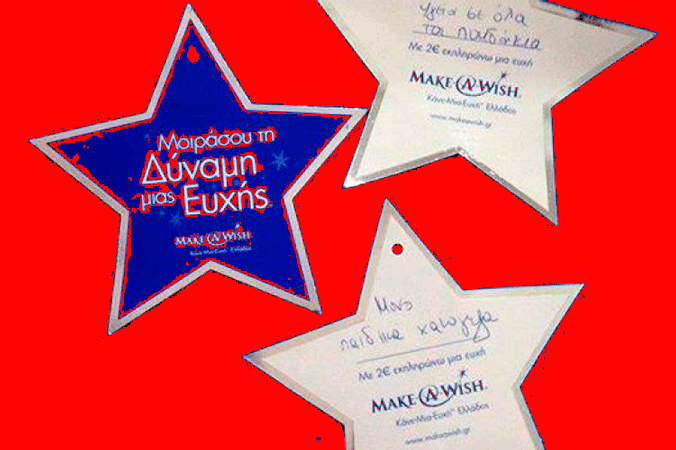 Μοιράσου τη
Δύναμη
μιας Ευχής
MAKE-A-WISH
Κάνε-Μια-Ευχή Ελλάδος
υγεία σε όλα
τα παιδάκια
Με 2€ εκπληρώνω μια ευχή
MAKE-A-WISH
Κάνε-Μια-Ευχή Ελλάδος
www.makeawish.gr
Μόνο
παιδικά χαμόγελα
Με 2€ εκπληρώνω μια ευχή
MAKE-A-WISH
Κάνε-Μια-Ευχή Ελλάδος
www.makeawish.gr